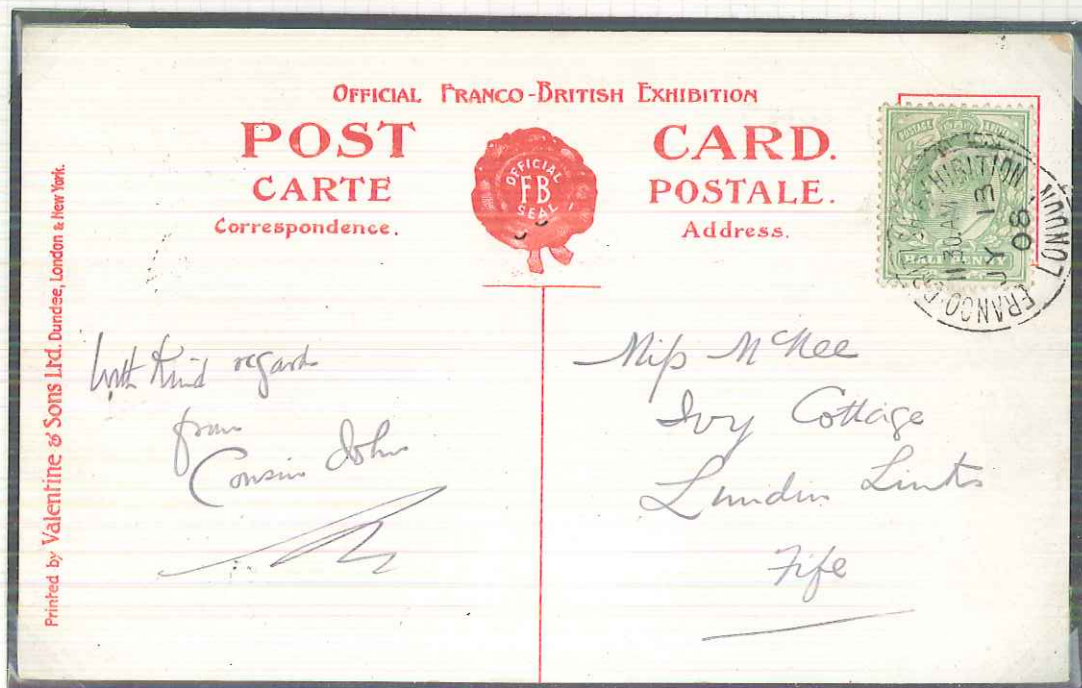 OFFICIAL FRANCO-BRITISH EXHIBITION
POST CARD.
CARTE POSTALE.
Correspondence. Address.
OFFICIAL
FB
SEAL
POSTAGE
HALFPENNY
FRANCO-BRITISH EXHIBITION LONDON
11 30AM
JY 13
08
Printed by Valentine & Sons Ltd. Dundee, London & New York.
With Kind regards
from
Cousin John
Miss McNee
Ivy Cottage
Lundin Links
Fife